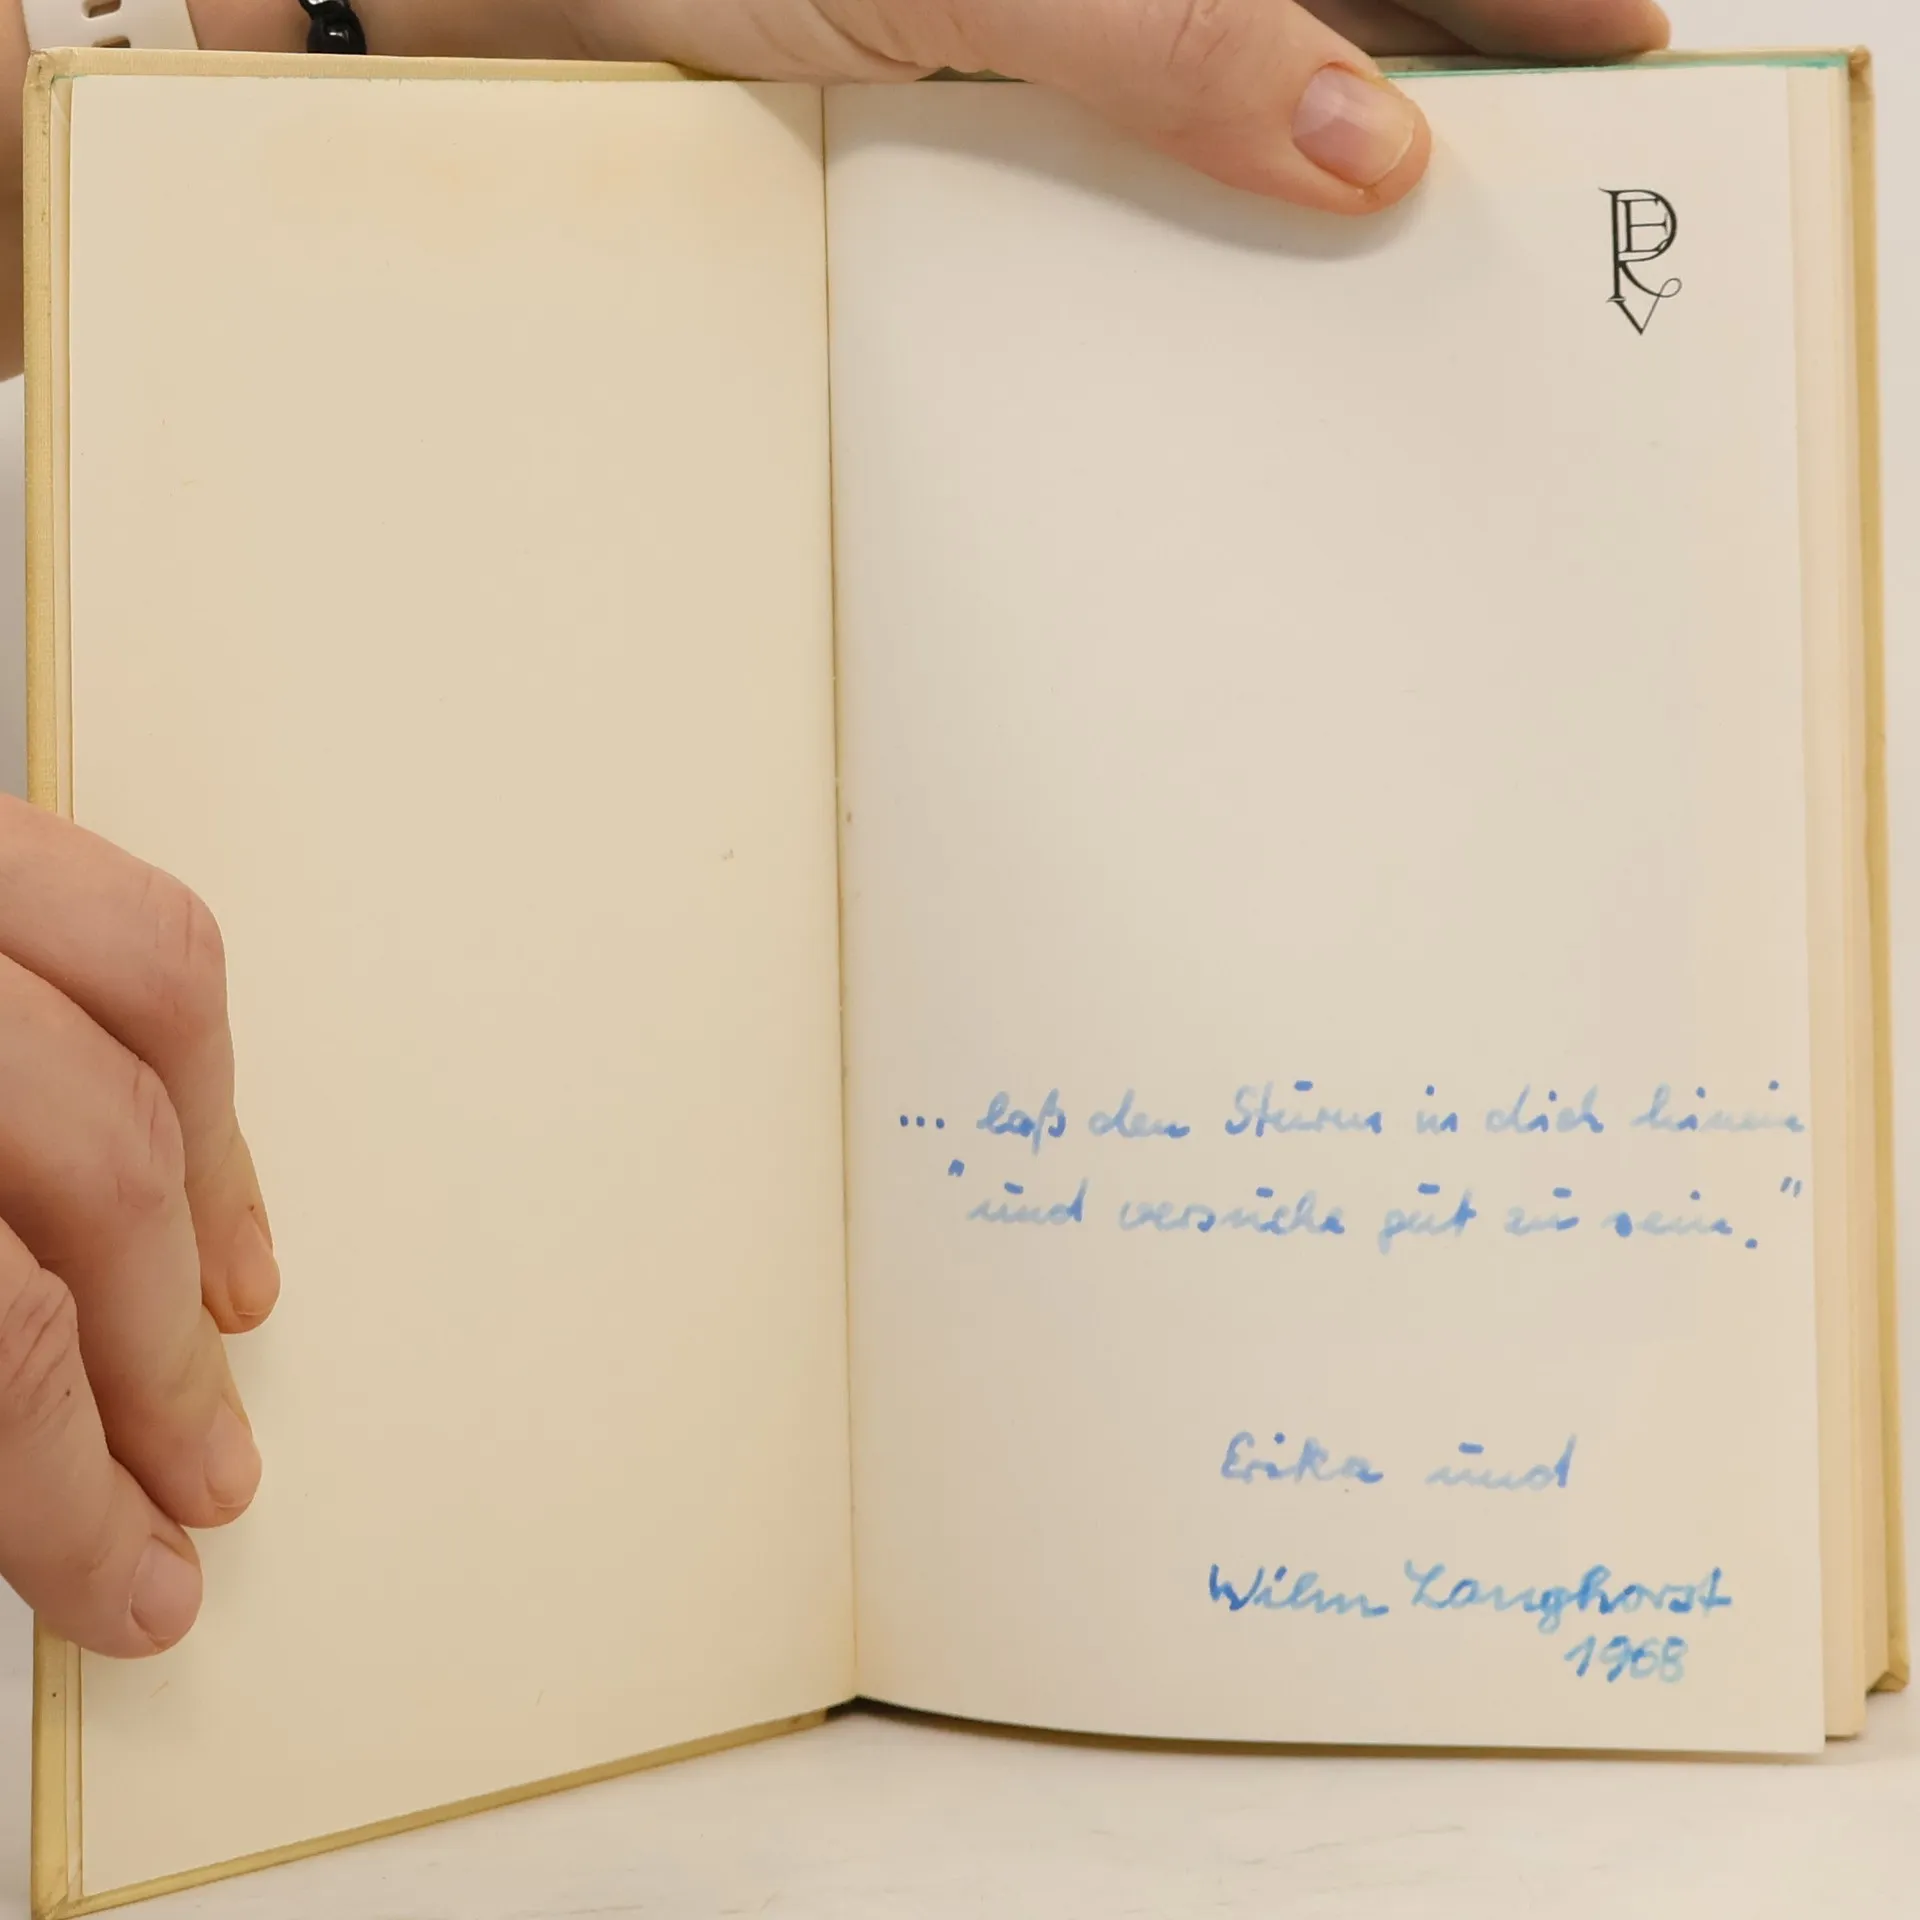 PERV
... laß den Sturm in dich hinein
"und versuche gut zu sein."
Erika und
Wilm Langhorst
1968